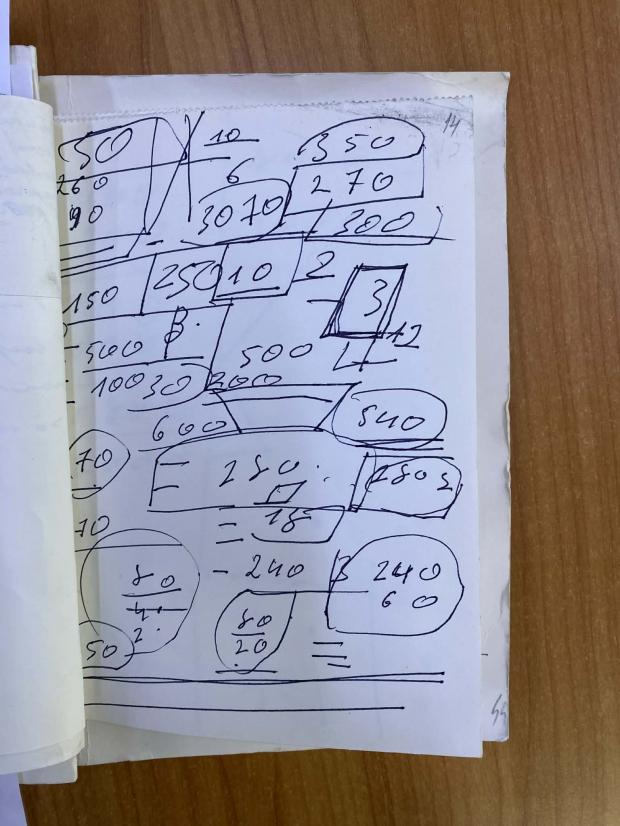 14
30 10 350
260 6 270
90 3070 300
150 250 10 2 3
500 B. 500 4 12
100 30 200
600 540
70 280.
= 18
70
80 - 240 B 240
60
2. 80
50 20